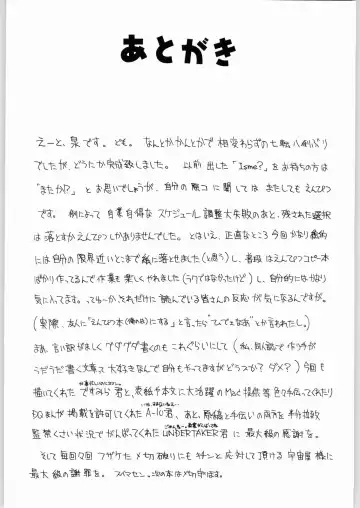 あとがき
えーと、泉です。ども。なんとかかんとかで相変わらずの七転八倒ぶり
でしたが、どうにか完成致しました。以前出した「Isme?」をお持ちの方は
"またか!?"とお思いでしょうが、自分の原コに関しては またしてもえんぴつ
です。例によって自業自得なスケジュール調整大失敗のあと、残された選択
は落とすかえんぴつしかありませんでした。とはいえ、正直なところ今回かなり
には自分の限界近いとこまで紙に落とせました(と思う)し、普段はえんぴつコピー本
ばかり作ってるんで作業も楽しくやれました(ラクではなかったけど)し、自分的にはかなり
気に入ってます。ってゆーか、それだけに「読んでいる皆さんの反応が気になるんですが。
(実際、友人に"えんぴつ本(俺の分)にする"と言ったら"てめでえなあ"とか言われたし。)
まあ、言い訳がましくグダグダ書くのもこれぐらいにして(私、同人誌で作家が
うだうだ書く文章って大好きなんで自分もやってますがどうっスか?ダメ?)今回も
描いてくれたですみら君と、表紙や本文に大活躍のMac提供等色々手伝ってくれたり
DQまんが掲載を許可してくれたA-10君、あと、原稿を手伝いの
監禁くさい状況でがんばってくれたUNDERTAKER君に最大級の感謝を。
そして毎回々回フザケた〆切破りにもキチンと応対して頂ける宇宙屋様に
最大級の謝罪を。スバマセン。次の本は〆切守ります。